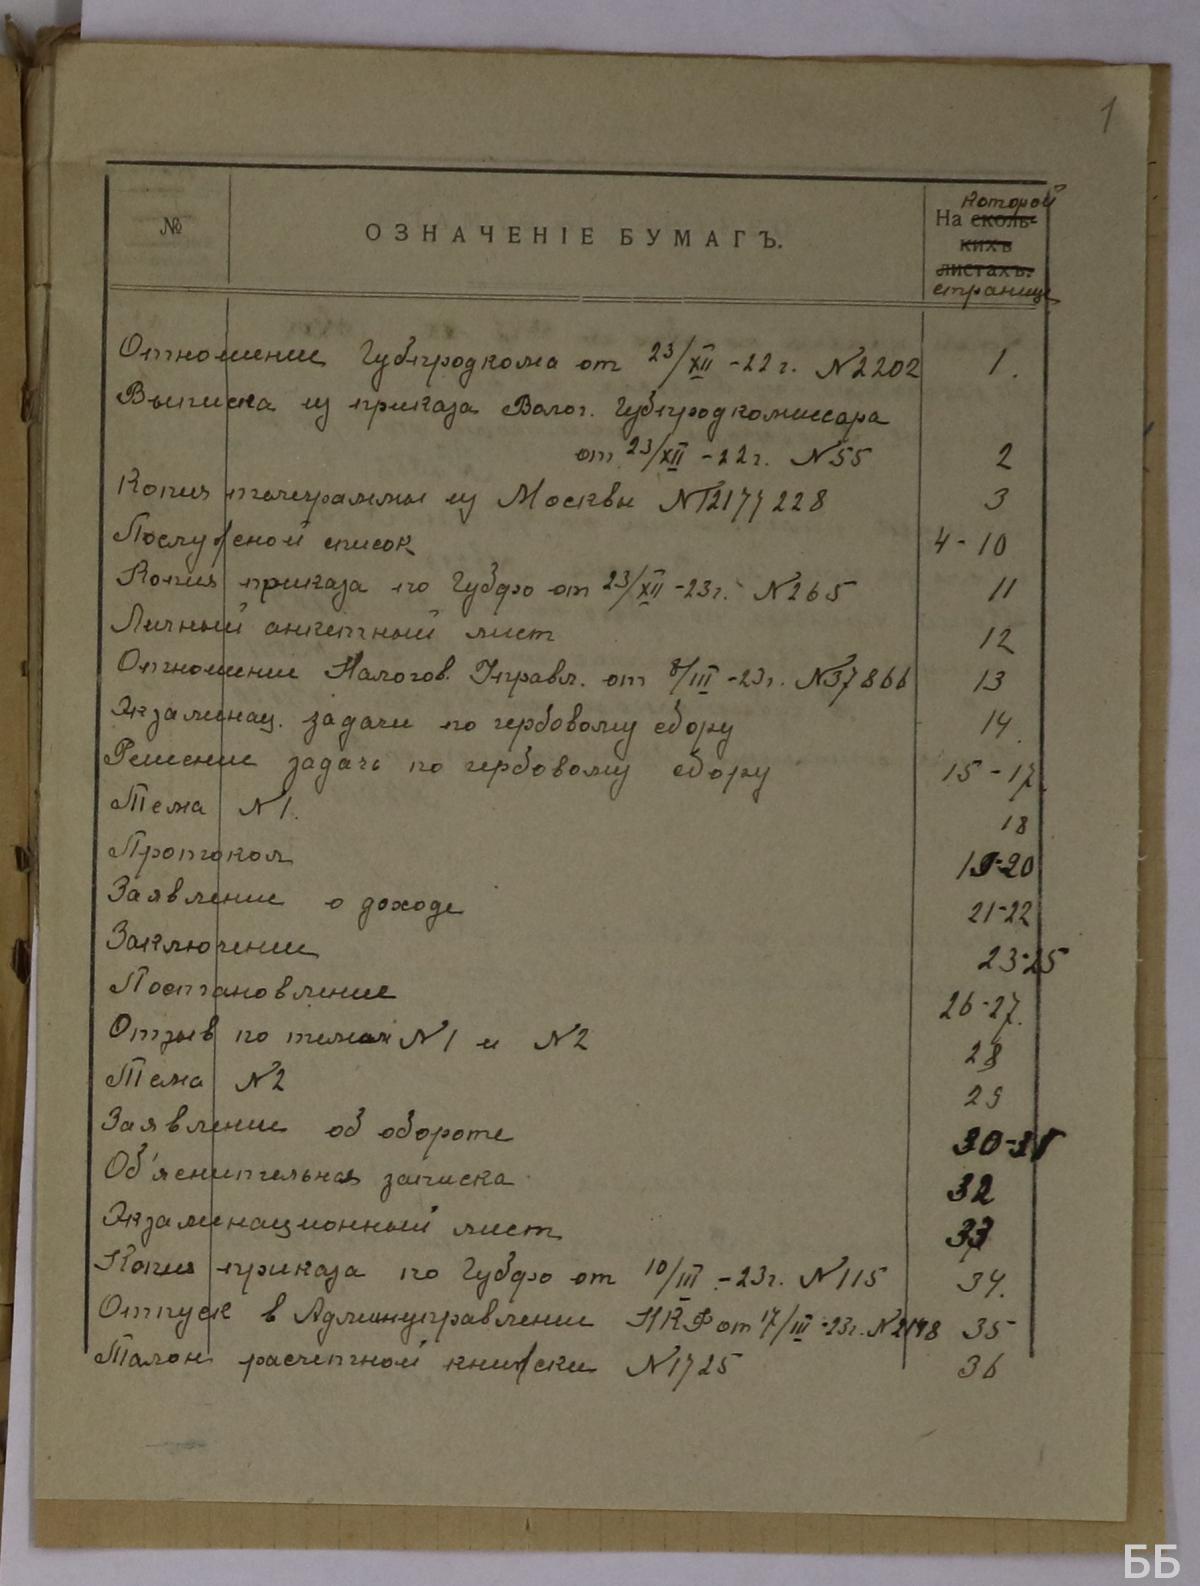 1
№ ОЗНАЧЕНІЕ БУМАГЪ. На сколь- которой
кихъ
листахъ.
страницѣ
Отношение Губпродкома от 23/XII -22 г. N2202 1.
Выписка из приказа Волог. Губпродкомиссара
от 23/XII -22 г. N55 2
Копия телеграммы из Москвы 3
Послужной список 4-10
Копия приказа по Губфо от 23/XII -23 г. N265 11
Личный анкетный лист 12
Отношение Налогов. Управл. от 8/III -23 г. N37866 13
Экзаминац. задачи по гербовому сбору 14.
Решение задачь по гербовому сбору 15-17.
Тема N1. 18
Протокол 19-20
Заявление о доходе 21-22
Заключение 23-25
Постановление 26-27.
Отзыв по темам N1 и N2 28
Тема N2 29
Заявление об обороте 30-31
Об'яснительная записка 32
Экзаминационный лист 33
Копия приказа по Губфо от 10/III -23 г. N115 34.
Отпуск в Админуправление НКФ от 17/III -23 г. 35
Талон расчетной книжки N1725 36
ББ